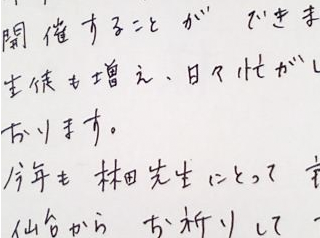 開催することができま
生徒も増え、日々忙がし
おります。
今年も林田先生にとって
仙台からお祈りして